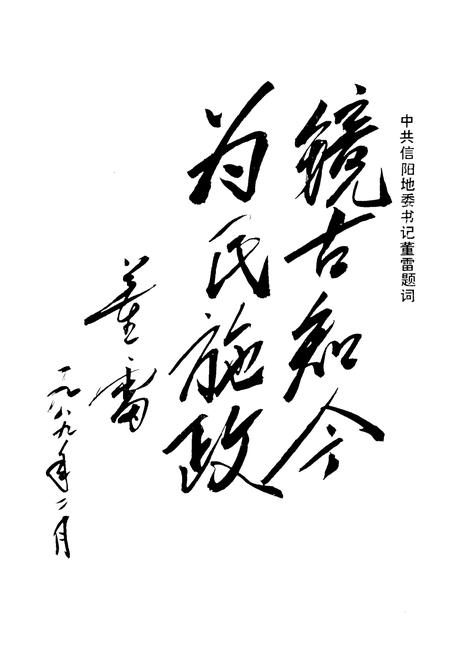 中共信阳地委书记董雷题词
镜古知今
为民施政
董雷
一九八九年二月